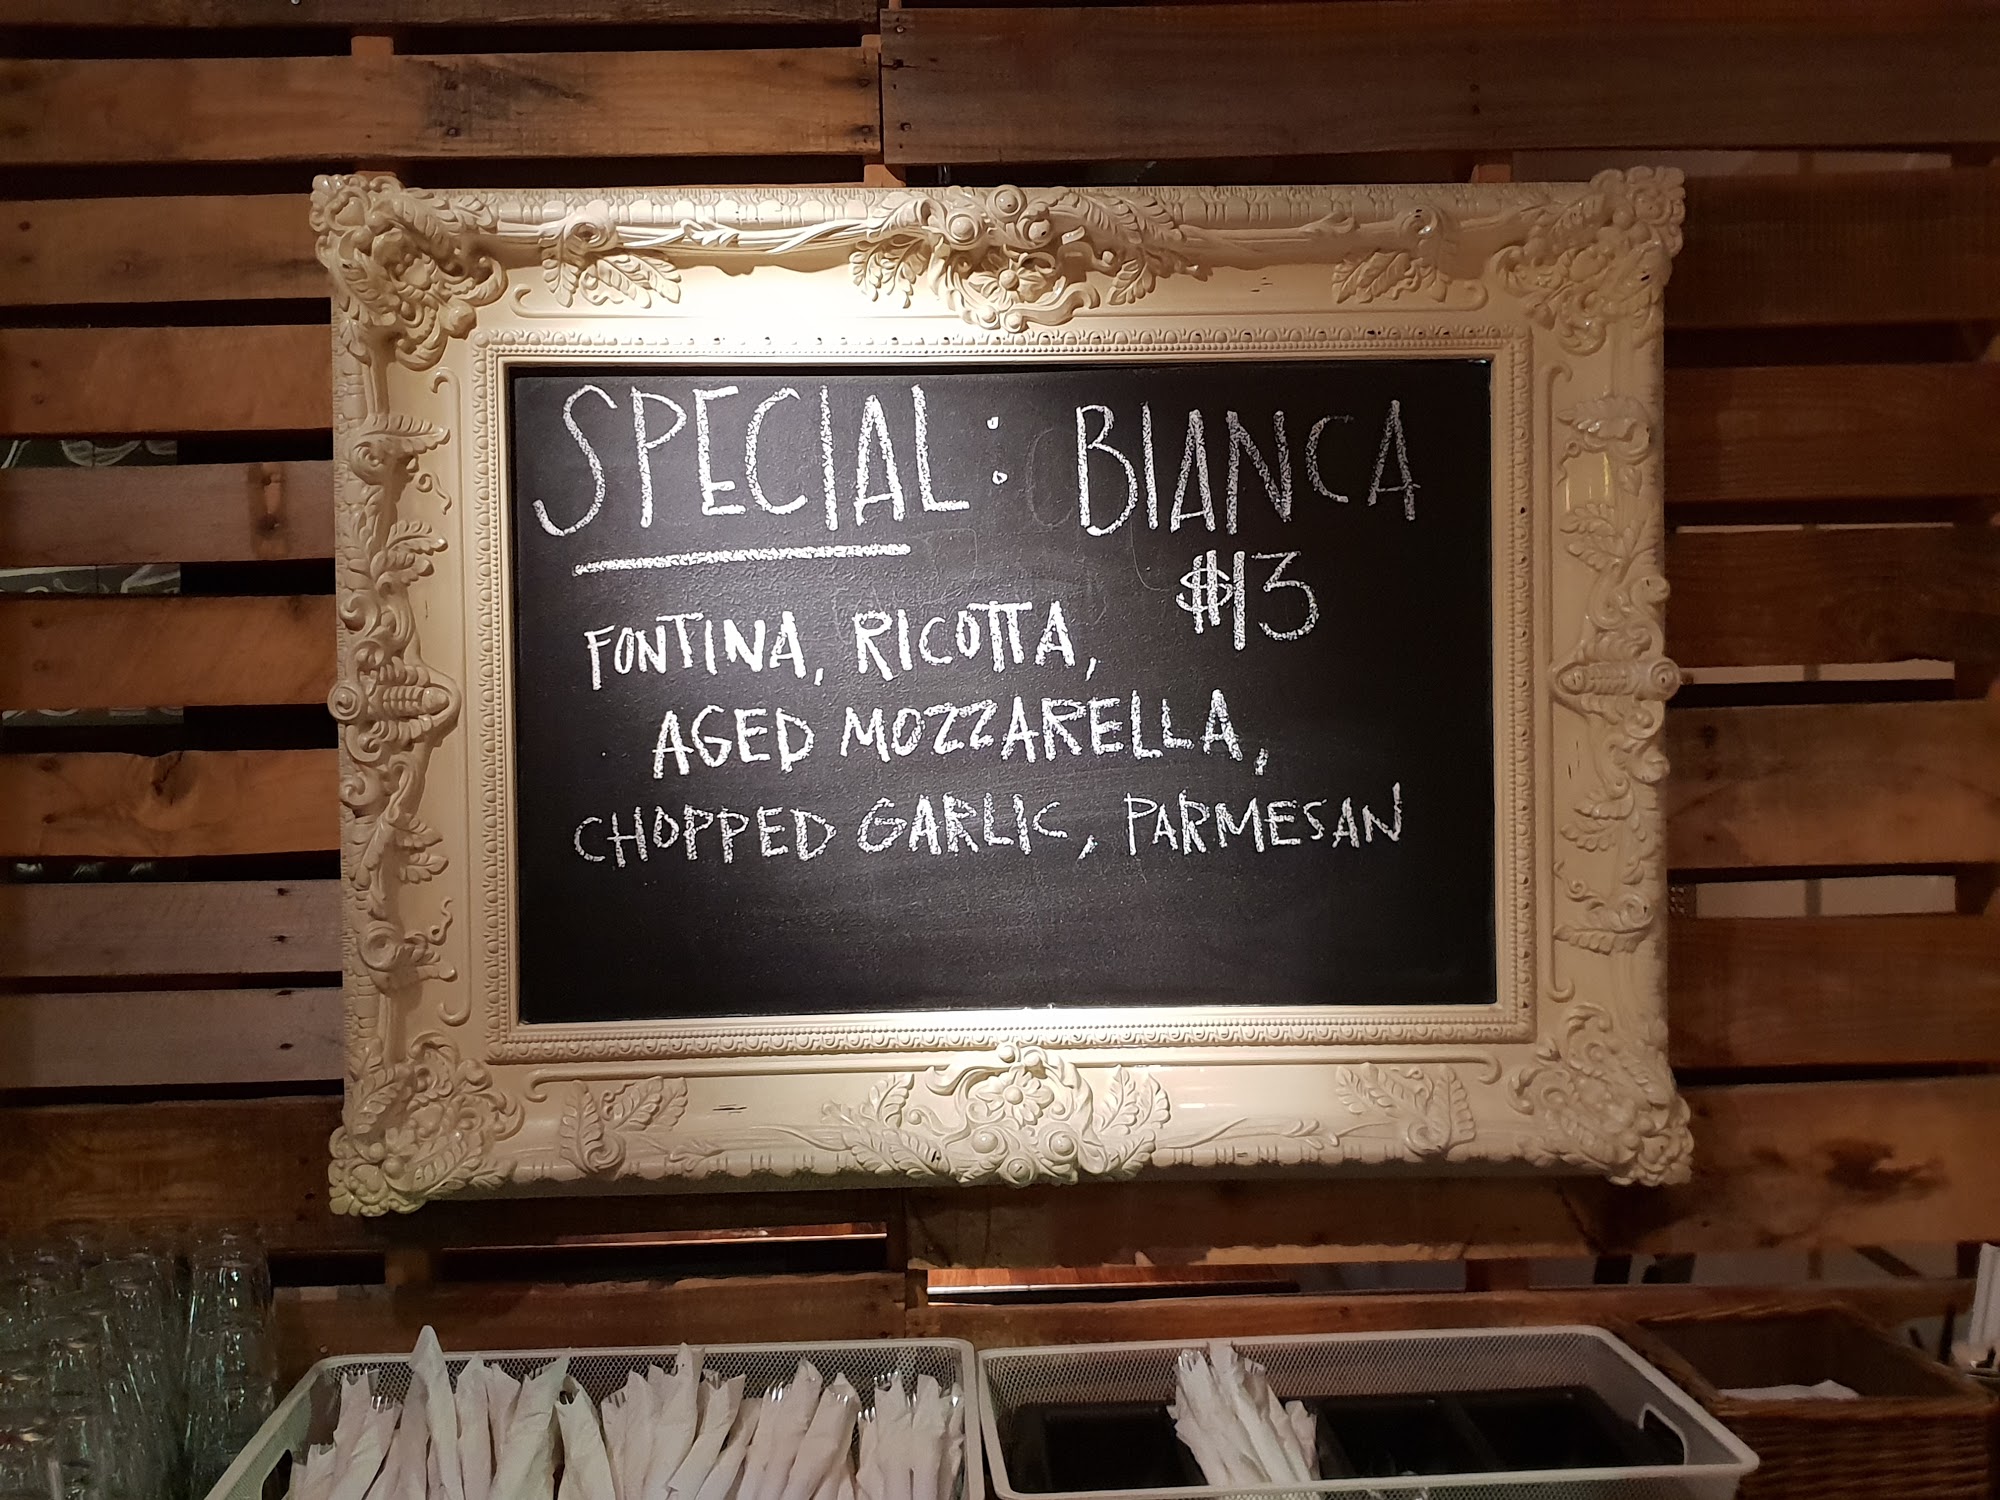 SPECIAL: BIANCA
$13
FONTINA, RICOTTA,
AGED MOZZARELLA,
CHOPPED GARLIC, PARMESAN